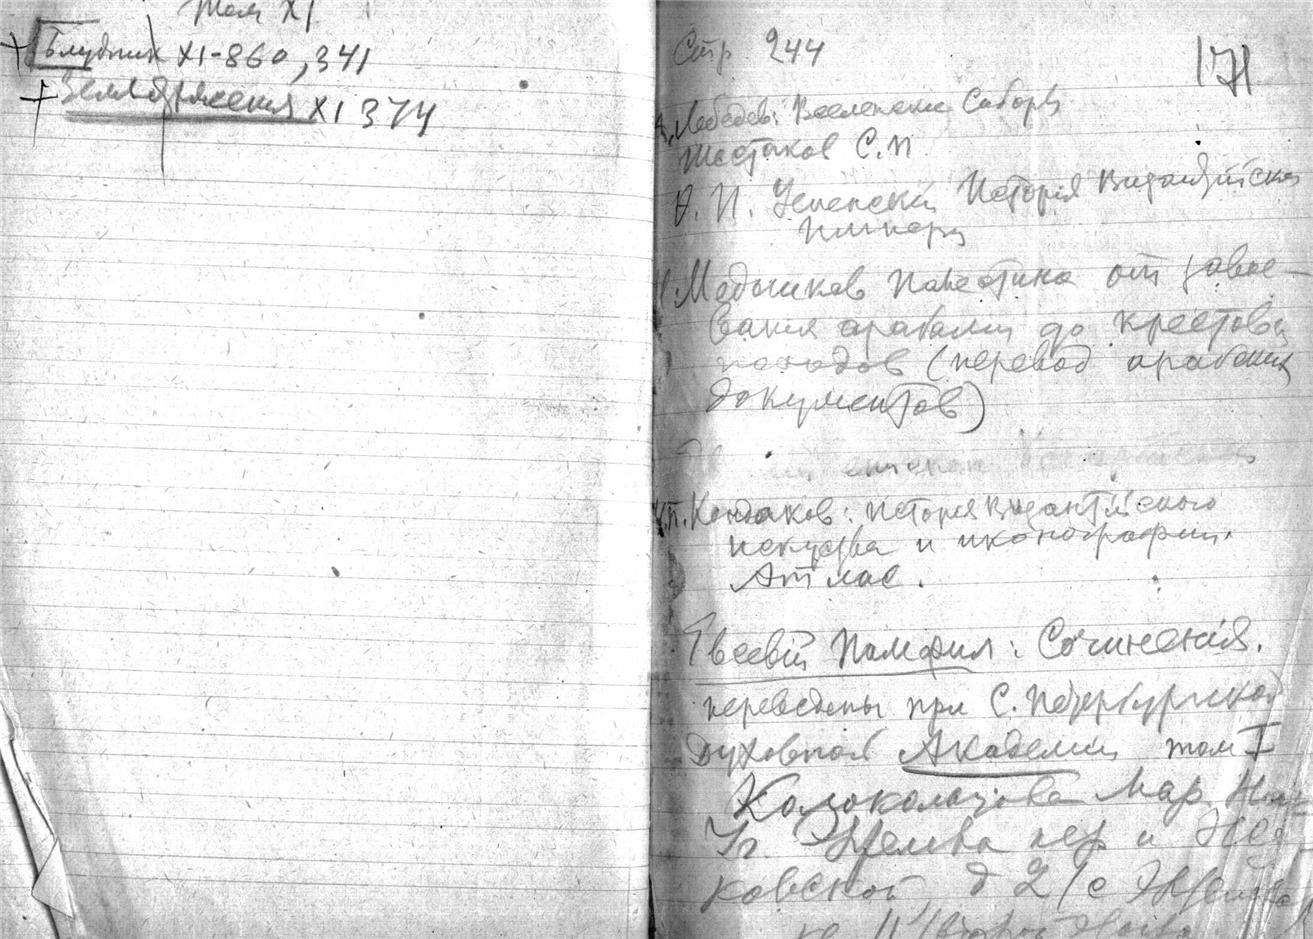 Том XI
Блудник XI-860, 341
Землетрясения XI 374
Стр 244
171
А. Лебедев: Вселенские Соборы
Шестаков С.П
Ф. И. Успенский История Византийской
Империи
Н. Медников Палестина от завое-
вания арабами до крестовых
походов (перевод арабских
документов)
епископ
Н.П. Кондаков: История Византийского
искуства и иконографии.
Атлас.
Евсевий Памфил: Сочинения.
переведены при С. Петербургской
духовной Академии том I
Колокольцова Мар
Уг. пер и
ковской, д 2 (с